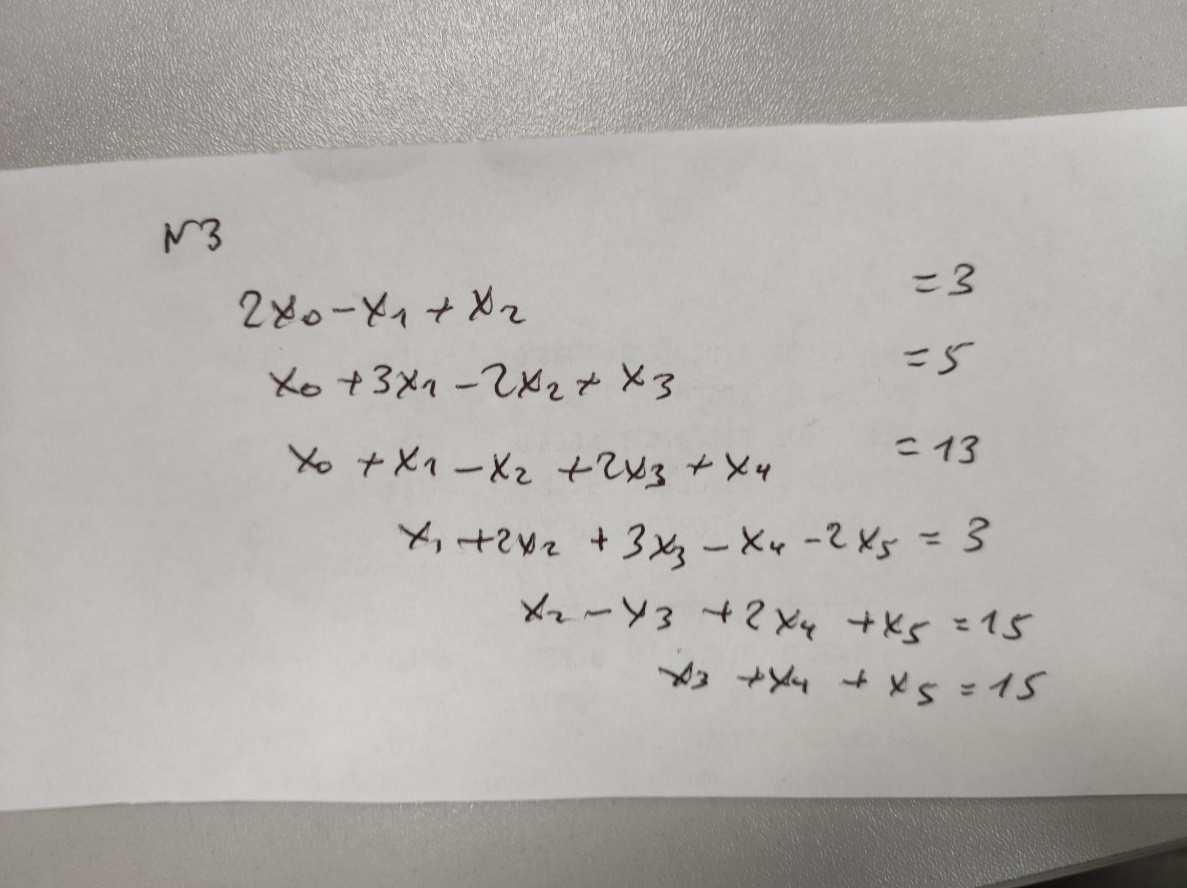 №3
2x₀ - x₁ + x₂ = 3
x₀ + 3x₁ - 2x₂ + x₃ = 5
x₀ + x₁ - x₂ + 2x₃ + x₄ = 13
x₁ + 2x₂ + 3x₃ - x₄ - 2x₅ = 3
x₂ - x₃ + 2x₄ + x₅ = 15
x₃ + x₄ + x₅ = 15